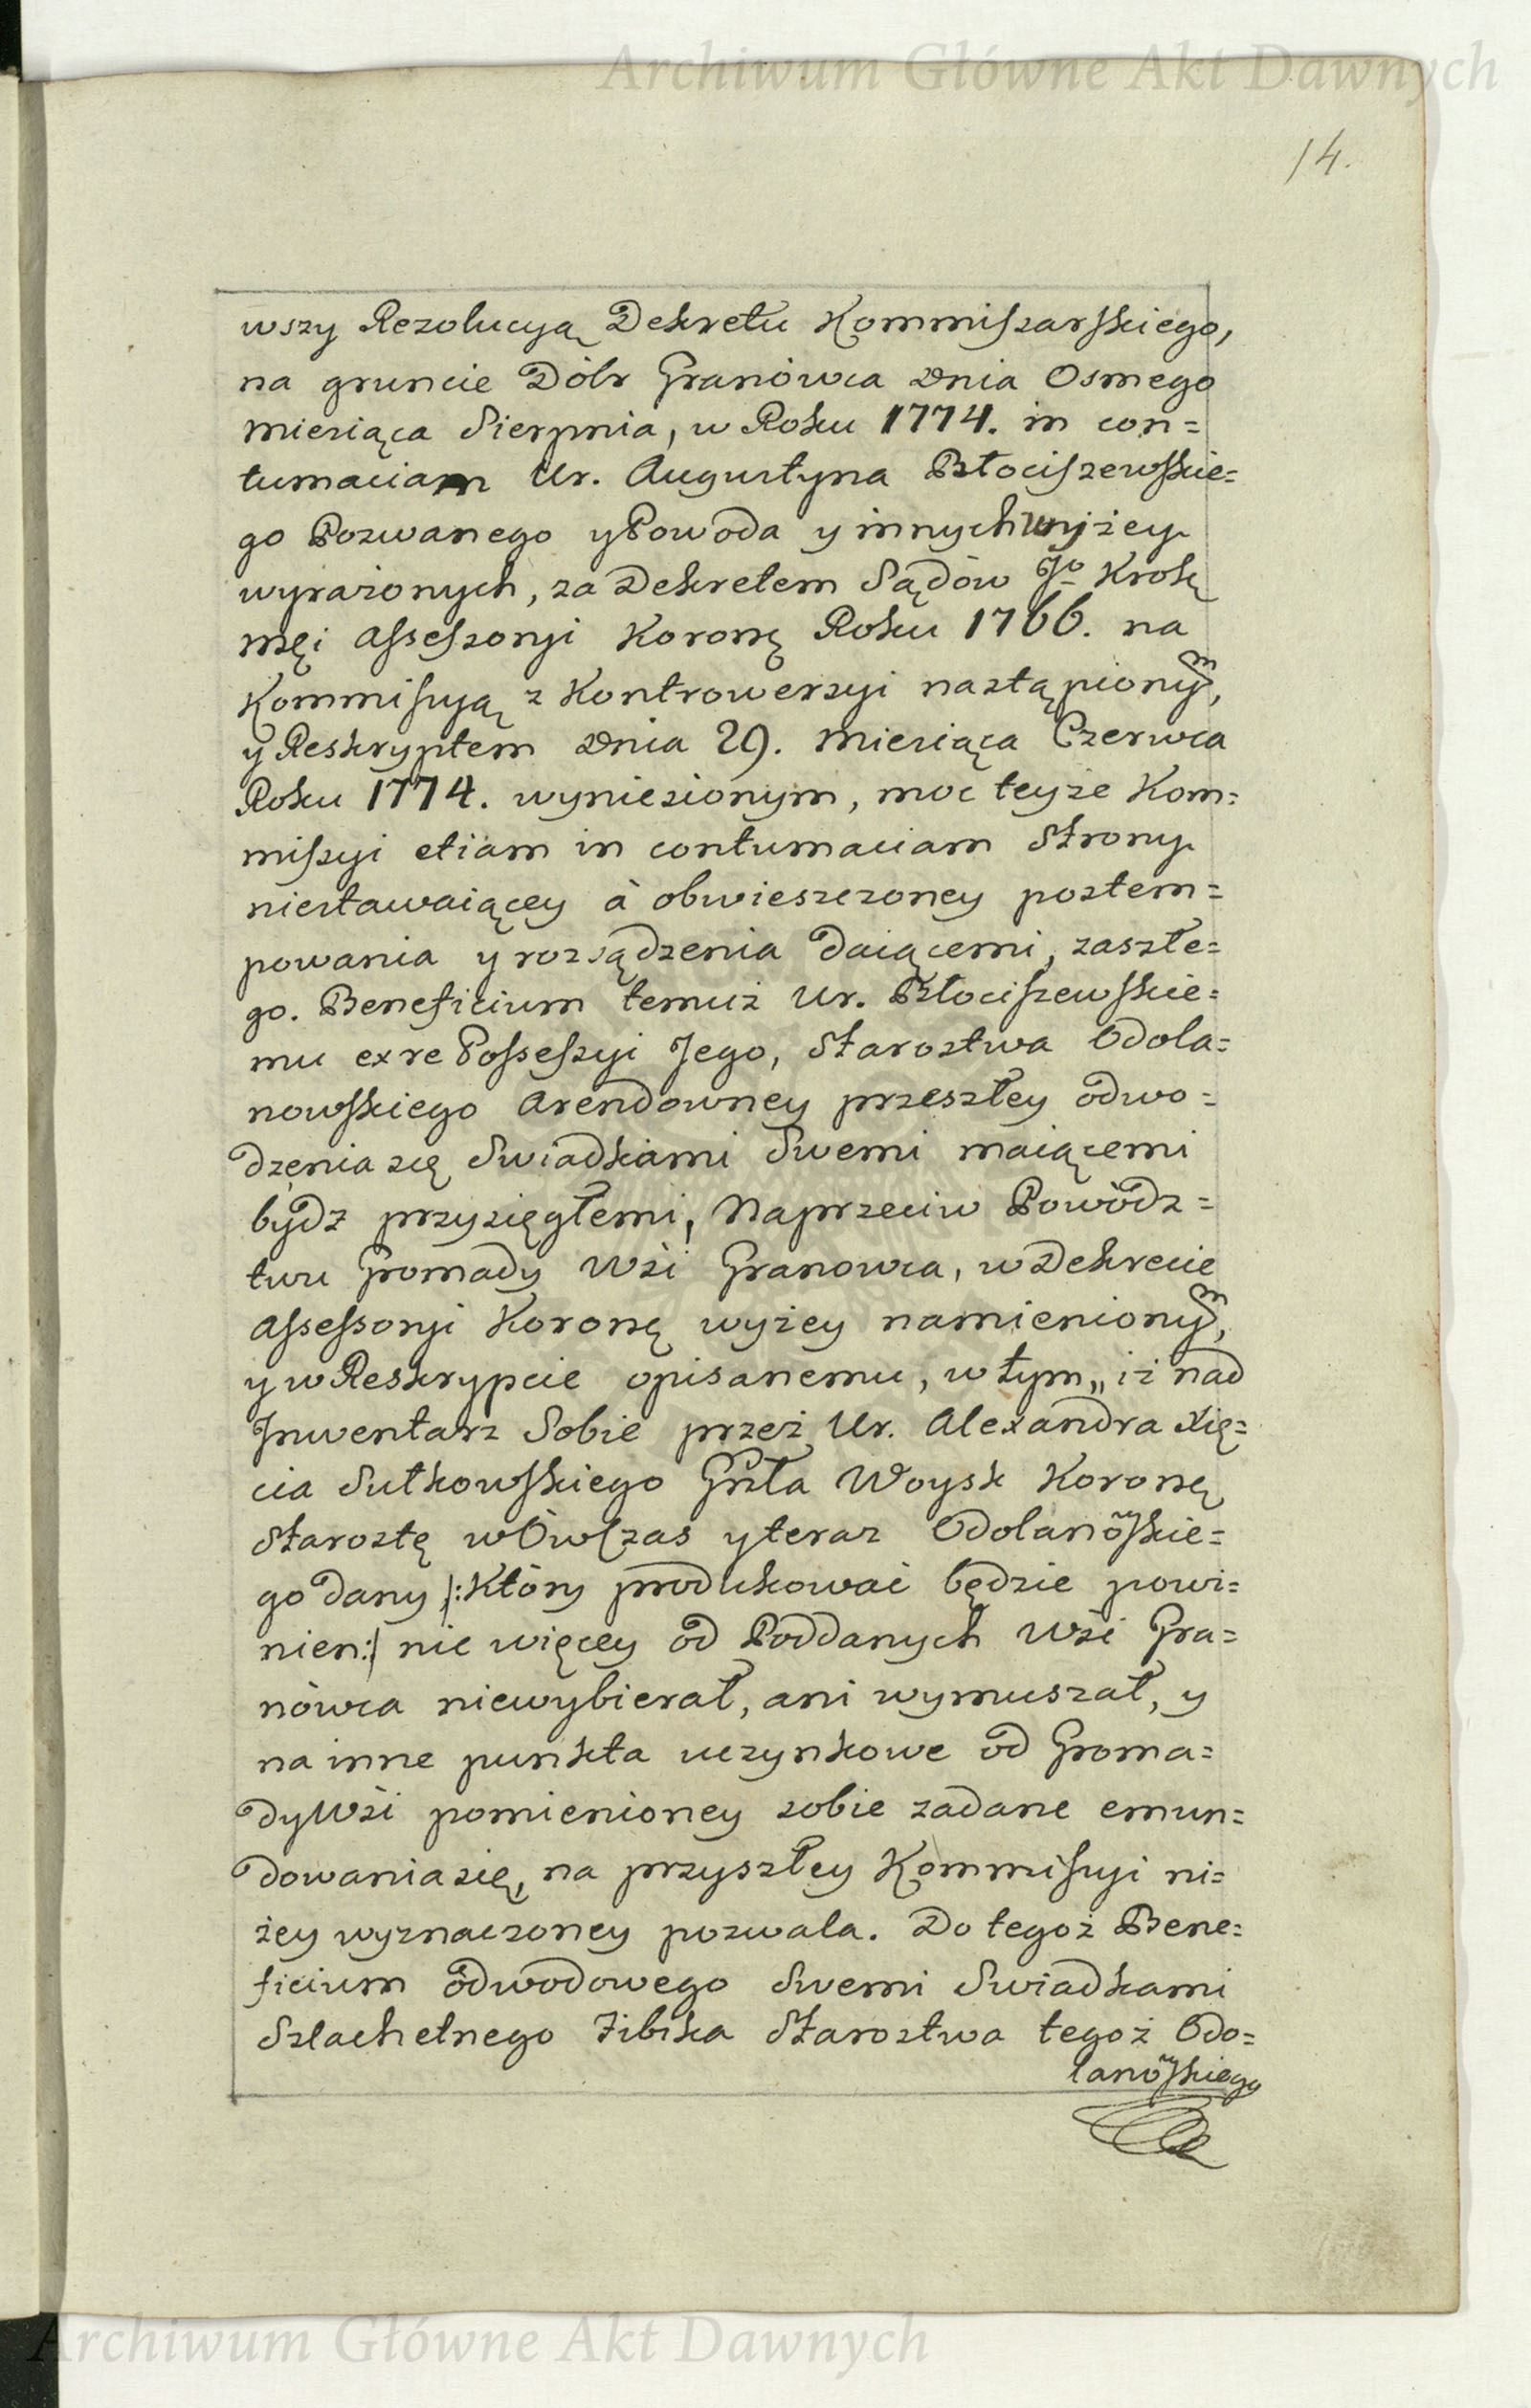 Archiwum Główne Akt Dawnych
14.
wszy Rezolucyą Dekretu Kommiszarskiego,
na gruncie Dóbr Granówca Dnia Osmego
Miesiąca Sierpnia, w Roku 1774. in con=
tumaciam Ur. Augustyna Błociszewskie=
go Pozwanego y Powoda y innych wyżey
wyrażonych, za Dekretem Sądów Jo Krolę
męi Assessoryi Koronę Roku 1766. na
Kommissyią z Kontrowersyi nastąpionym,
y Reskryptem Dnia 29. Miesiąca Czerwca
Roku 1774. wyniesionym, moc teyże Kom=
missyi etiam in contumaciam Strony
niestawaiącey à obwieszczoney postem=
powania y rozsądzenia daiącemi, zaszłe=
go. Beneficium temuż Ur. Błociszewskie=
mu ex re Possessyi Jego, Starostwa Odola=
nowskiego Arendowney przeszłey odwo=
dzenia się Swiadkami Swemi maiącemi
bydz przysięgłemi, Naprzeciw Powódz=
twu Gromady Wsi Granowca, w Dekrecie
Assessoryi Koronę wyżey namienionym,
y w Reskrypcie opisanemu, w tym„ iż nad
Inwentarz Sobie przez Ur. Alexandra Xię=
cia Sułkowskiego Gnła Woysk Koronę
Starostę w Ówczas y teraz Odolanowskie=
go dany /: Który produkować będzie powi=
nien :/ nic więcey od Poddanych Wsi Gra=
nówca niewybierał, ani wymuszał, y
na inne punkta uczynkowe od Groma=
dy Wsi pomienioney sobie zadane emun=
dowania się, na przyszłey Kommissyi ni=
żey wyznaczoney pozwala. Do tegoż Bene=
ficium odwodowego Swemi Swiadkami
Szlachetnego Zibika Starostwa tegoż Odo=
lanowskiego
Archiwum Główne Akt Dawnych